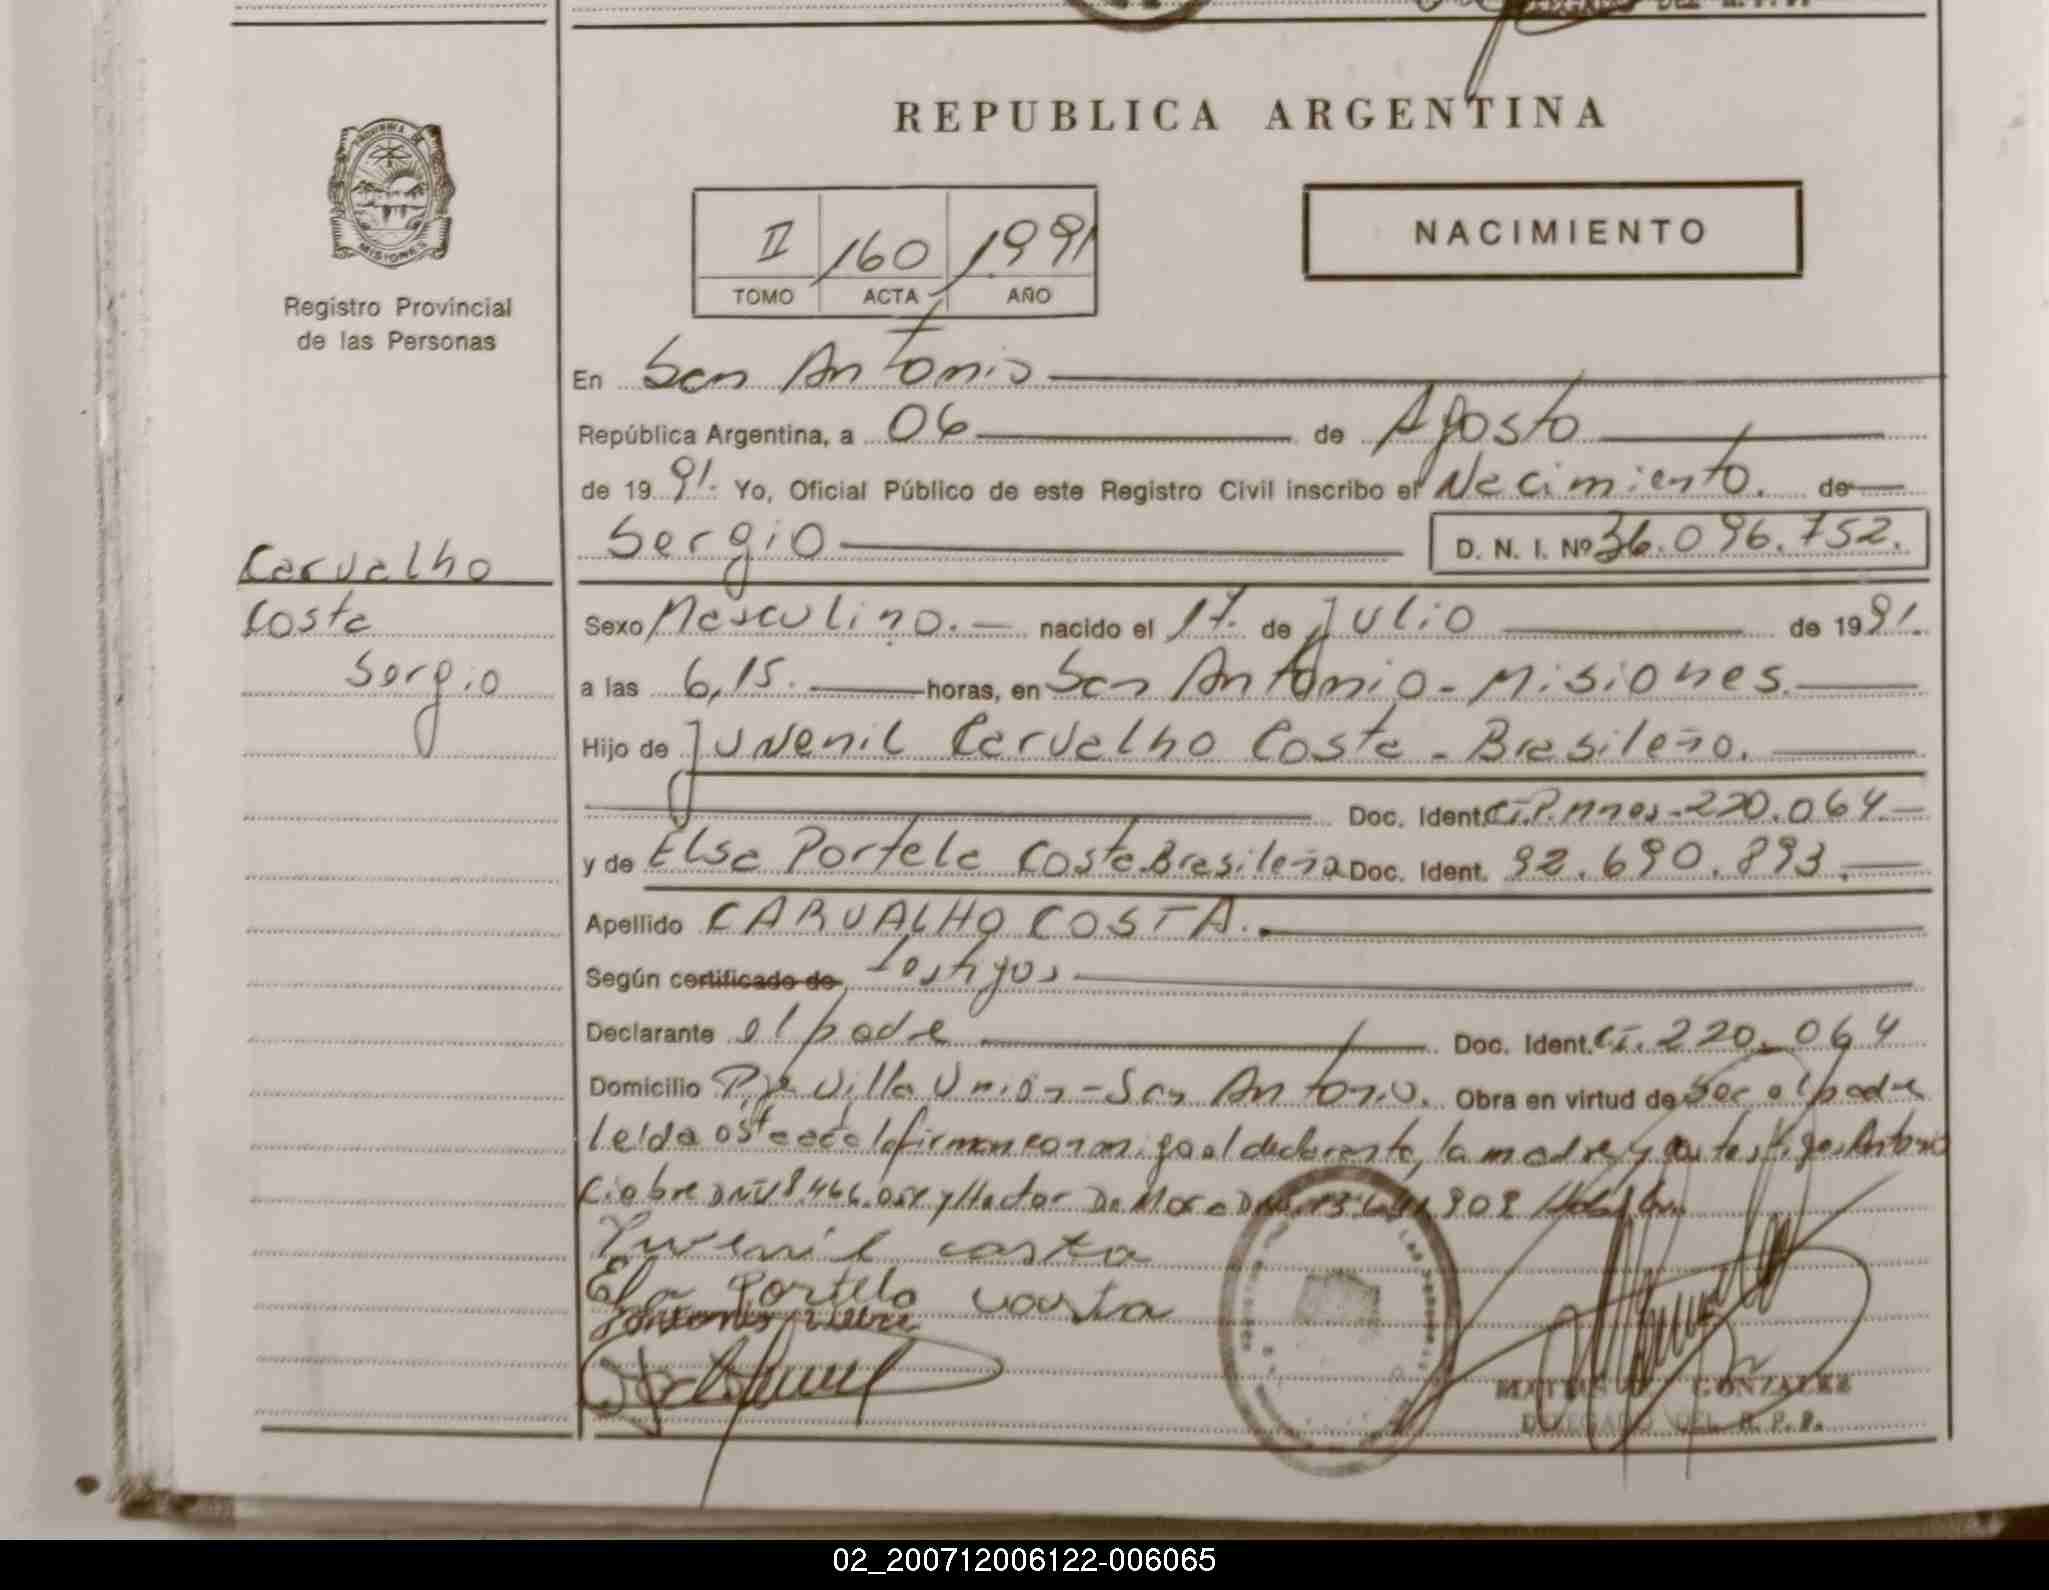 REPUBLICA ARGENTINA
PROVINCIA DE
MISIONES
Registro Provincial
de las Personas
II 160 1991
TOMO ACTA AÑO
NACIMIENTO
En San Antonio
República Argentina, a 06 de Agosto
de 1991. Yo, Oficial Público de este Registro Civil inscribo el Nacimiento. de
Sergio D. N. I. Nº 36.096.752.
Carvalho
Costa
Sergio
Sexo Masculino. nacido el 17. de Julio de 1991.
a las 6,15. horas, en San Antonio - Misiones.
Hijo de Juvenil Carvalho Costa - Brasileño.
Doc. Ident. C.I.P. Mnes - 220.064
y de Elsa Portela Costa Brasileña Doc. Ident. 92.690.893.
Apellido CARVALHO COSTA.
Según certificado de testigos
Declarante el padre Doc. Ident. CI. 220.064
Domicilio Pje Villa Unión - San Antonio. Obra en virtud de ser el padre
leida esta acta la firman conmigo el declarante, la madre y los testigos Antonio
DNI 8.466.054 y Hector Da
Yuvenil costa
Elsa Portela costa
MATIAS GONZALEZ
DELEGADO DEL R. P. P.
02_200712006122-006065